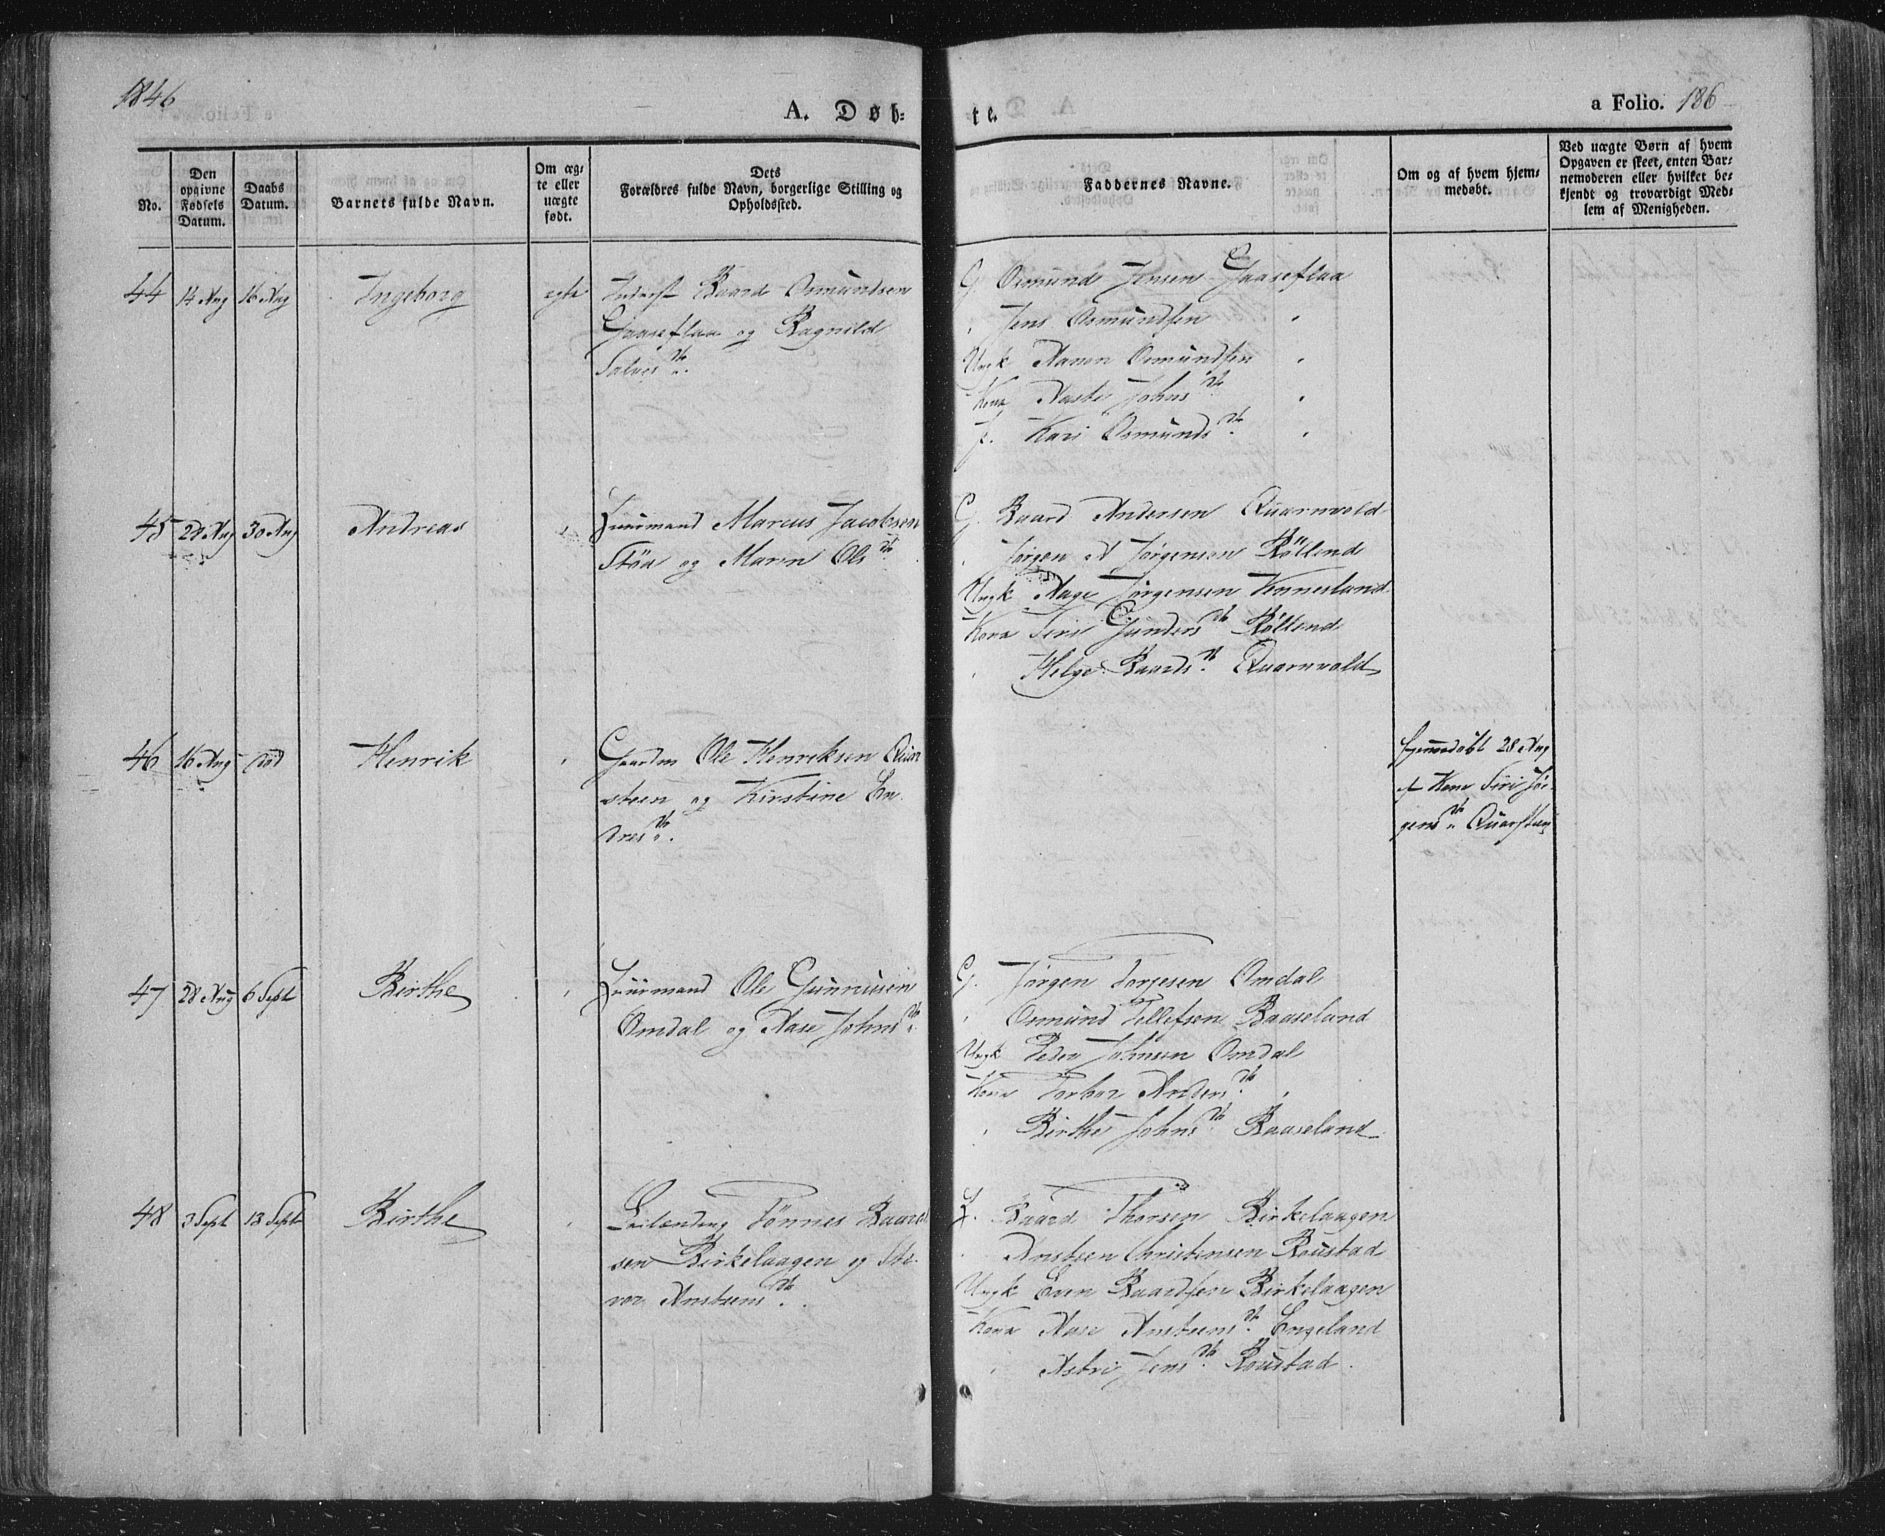 1846
A. Døb-
te.
a Folio. 186
No.
Den opgivne Fødsels Datum.
Daabs Datum.
Barnets fulde Navn.
Om ægte eller uægte født.
Dets Forældres fulde Navn, borgerlige Stilling og Opholdssted.
Faddernes Navne.
Om og af hvem hjemmedøbt.
Ved uægte Børn af hvem Opgaven er skeet, enten Barnemoderen eller hvilket bekjendt og troværdigt Medlem af Menigheden.
44 14 Aug 16 Aug Ingeborg egte Inderst Baard Osmundsen
Gaaseflaa og Ragnild
Salves Dr.
G Osmund Jensen Gaaseflaa
" Jens Osmundsen "
Ungk Aanen Osmundsen "
Kona Aaste Johns Dr "
P. Kari Osmunds Dr. "
45 20 Aug 30 Aug Andreas " Huurmand Marcus Jacobsen
Støa og Maren Ols Dr
G. Baard Andersen Quarnvold
" Jørgen A Jørgensen Røllend
Ungk Aage Jørgensen Vennesland
Kona Siri Gunders Dr Røllend
" Helge Baards Dr. Quarnvold
46 16 Aug død Henrik " Gaardm Ole Henriksen Quar
steen og Kirstine En
dres Dr.
hjemmedøbt 28 Aug
af Kona Siri Jør
gens Dr Quarsteen
47 28 Aug 6 Sept Birthe " Huurmand Ole Gunnusen
Omdal og Aase Johns Dr.
G. Jørgen Torjesen Omdal
" Osmund Tellefsen Baaseland
Ungk Peder Johnsen Omdal
Kona Torbor Anders Dr. "
" Birthe Johns Dr. Baaseland
48 3 Sept 13 Sept Birthe " Leilænding Tønnes Baard
sen Birkelaagen og
Anstens Dr.
Baard Thorsen Birkelaagen
" Ansteen Christensen Roustad
Ungk Even Baardsen Birkelaagen
Kona Aase Anstens Dr. Engeland
" Astri Jens Dr. Roustad.